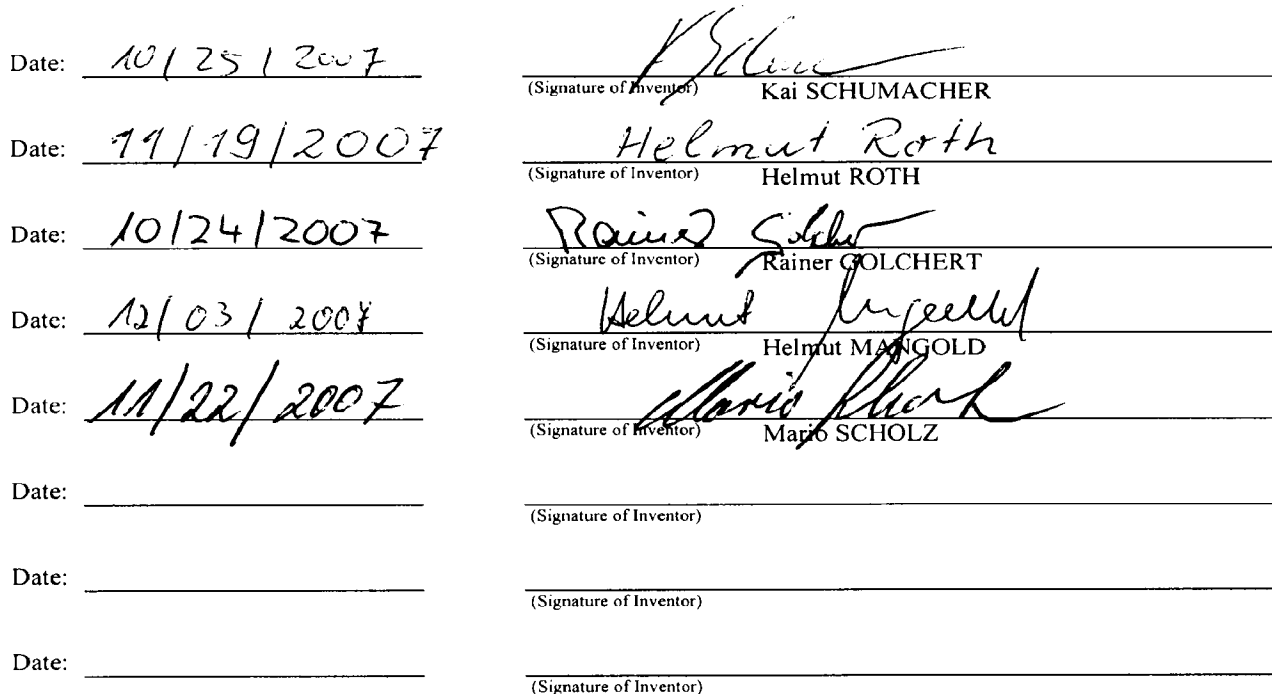 Date: 10/25/2007
(Signature of Inventor) Kai SCHUMACHER
Date: 11/19/2007 Helmut Roth
(Signature of Inventor) Helmut ROTH
Date: 10/24/2007 Rainer Golchert
(Signature of Inventor) Rainer GOLCHERT
Date: 12/03/2007 Helmut Mangold
(Signature of Inventor) Helmut MANGOLD
Date: 11/22/2007 Mario Scholz
(Signature of Inventor) Mario SCHOLZ
Date:
(Signature of Inventor)
Date:
(Signature of Inventor)
Date:
(Signature of Inventor)